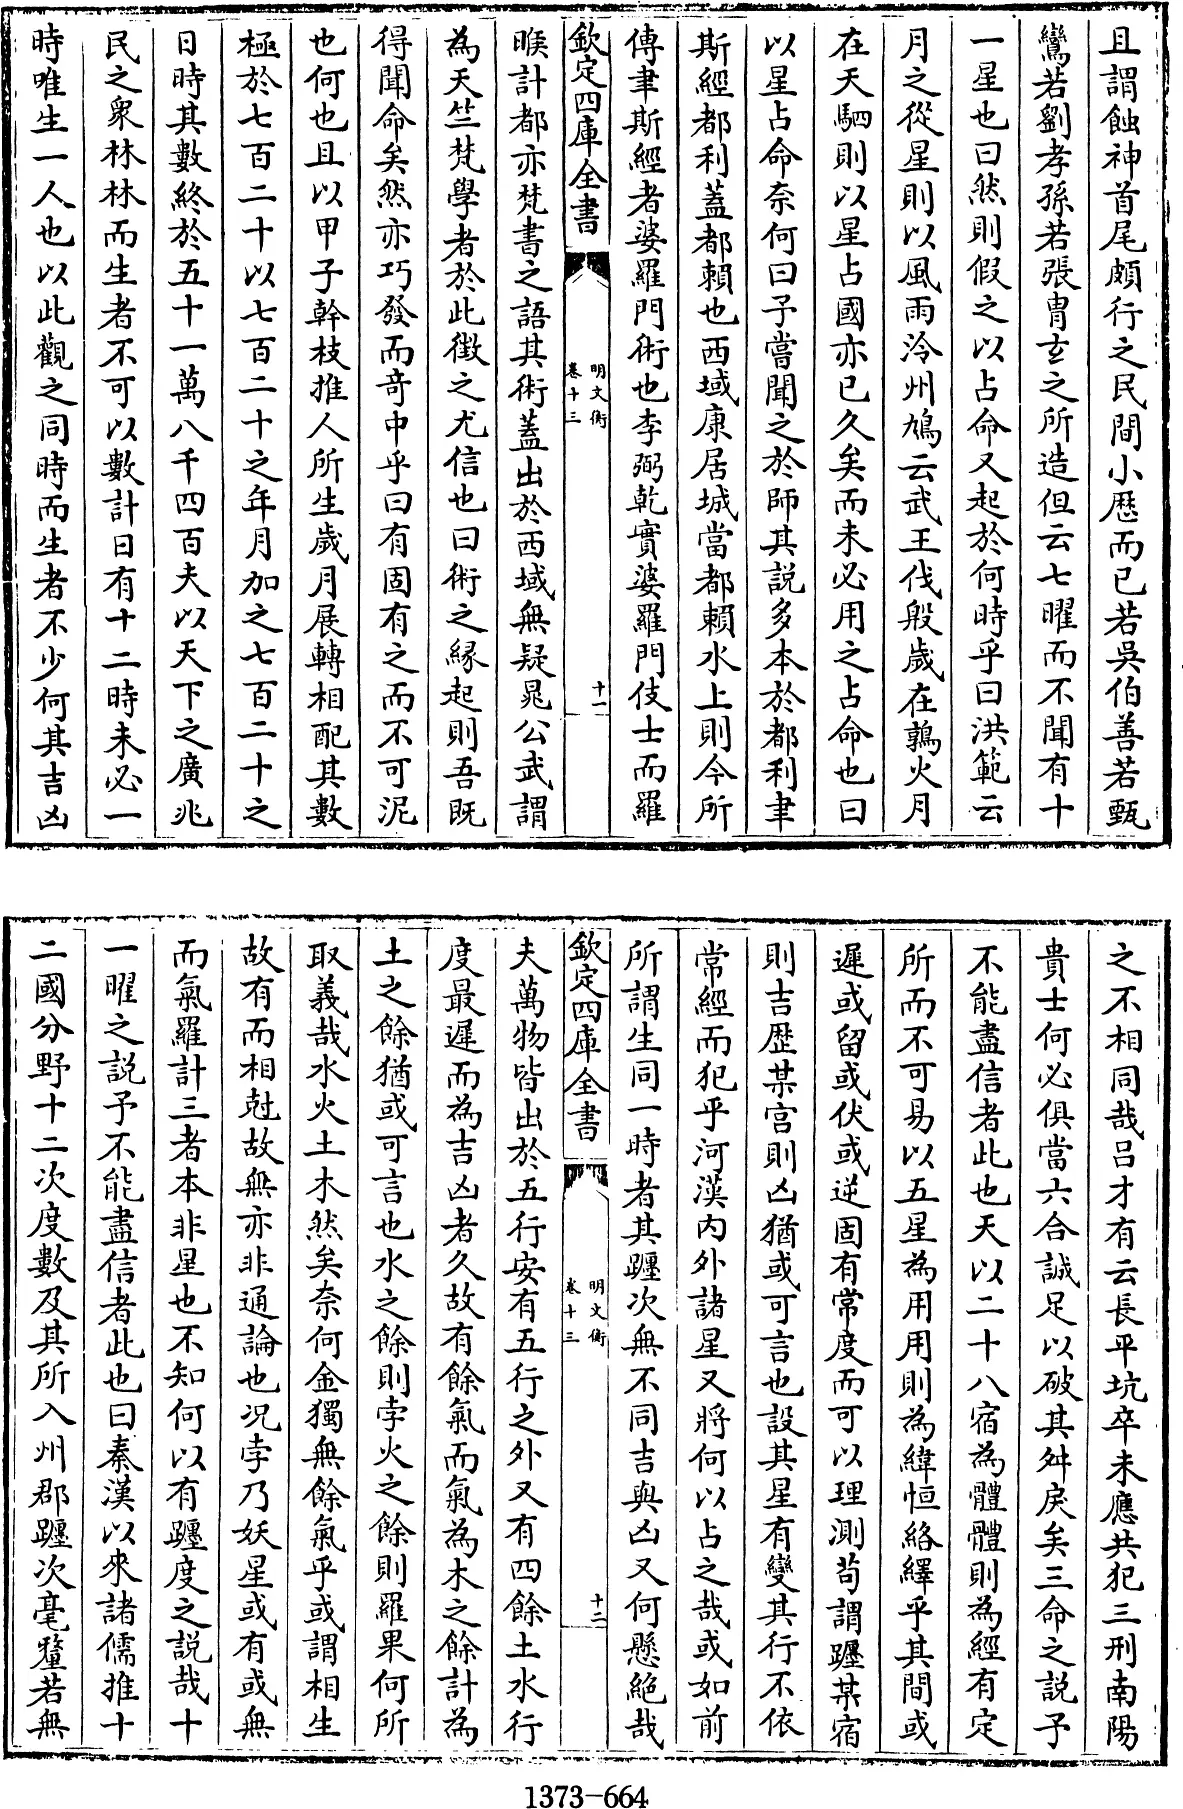 且謂蝕神首尾頗行之民間小歷而已若吳伯善若甄
鸞若劉孝孫若張胄玄之所造但云七曜而不聞有十
一星也曰然則假之以占命又起於何時乎曰洪範云
月之從星則以風雨泠州鳩云武王伐殷歲在鶉火月
在天駟則以星占國亦已久矣而未必用之占命也曰
以星占命奈何曰予嘗聞之於師其說多本於都利聿
斯經都利蓋都賴也西域康居城當都賴水上則今所
傳聿斯經者婆羅門術也李弼乾實婆羅門伎士而羅
欽定四庫全書
明文衡
卷十三
十一
睺計都亦梵書之語其術蓋出於西域無疑晁公武謂
為天竺梵學者於此徵之尤信也曰術之緣起則吾既
得聞命矣然亦巧發而奇中乎曰有固有之而不可泥
也何也且以甲子幹枝推人所生歲月展轉相配其數
極於七百二十以七百二十之年月加之七百二十之
日時其數終於五十一萬八千四百夫以天下之廣兆
民之衆林林而生者不可以數計日有十二時未必一
時唯生一人也以此觀之同時而生者不少何其吉凶
之不相同哉呂才有云長平坑卒未應共犯三刑南陽
貴士何必俱當六合誠足以破其舛戾矣三命之說予
不能盡信者此也天以二十八宿為體體則為經有定
所而不可易以五星為用用則為緯恒絡繹乎其間或
遲或留或伏或逆固有常度而可以理測苟謂躔某宿
則吉歷某宮則凶猶或可言也設其星有變其行不依
常經而犯乎河漢內外諸星又將何以占之哉或如前
所謂生同一時者其躔次無不同吉與凶又何懸絕哉
欽定四庫全書
明文衡
卷十三
十二
夫萬物皆出於五行安有五行之外又有四餘土水行
度最遲而為吉凶者久故有餘氣而氣為木之餘計為
土之餘猶或可言也水之餘則孛火之餘則羅果何所
取義哉水火土木然矣奈何金獨無餘氣乎或謂相生
故有而相尅故無亦非通論也况孛乃妖星或有或無
而氣羅計三者本非星也不知何以有躔度之說哉十
一曜之說予不能盡信者此也曰秦漢以來諸儒推十
二國分野十二次度數及其所入州郡躔次毫釐若無
1373-664